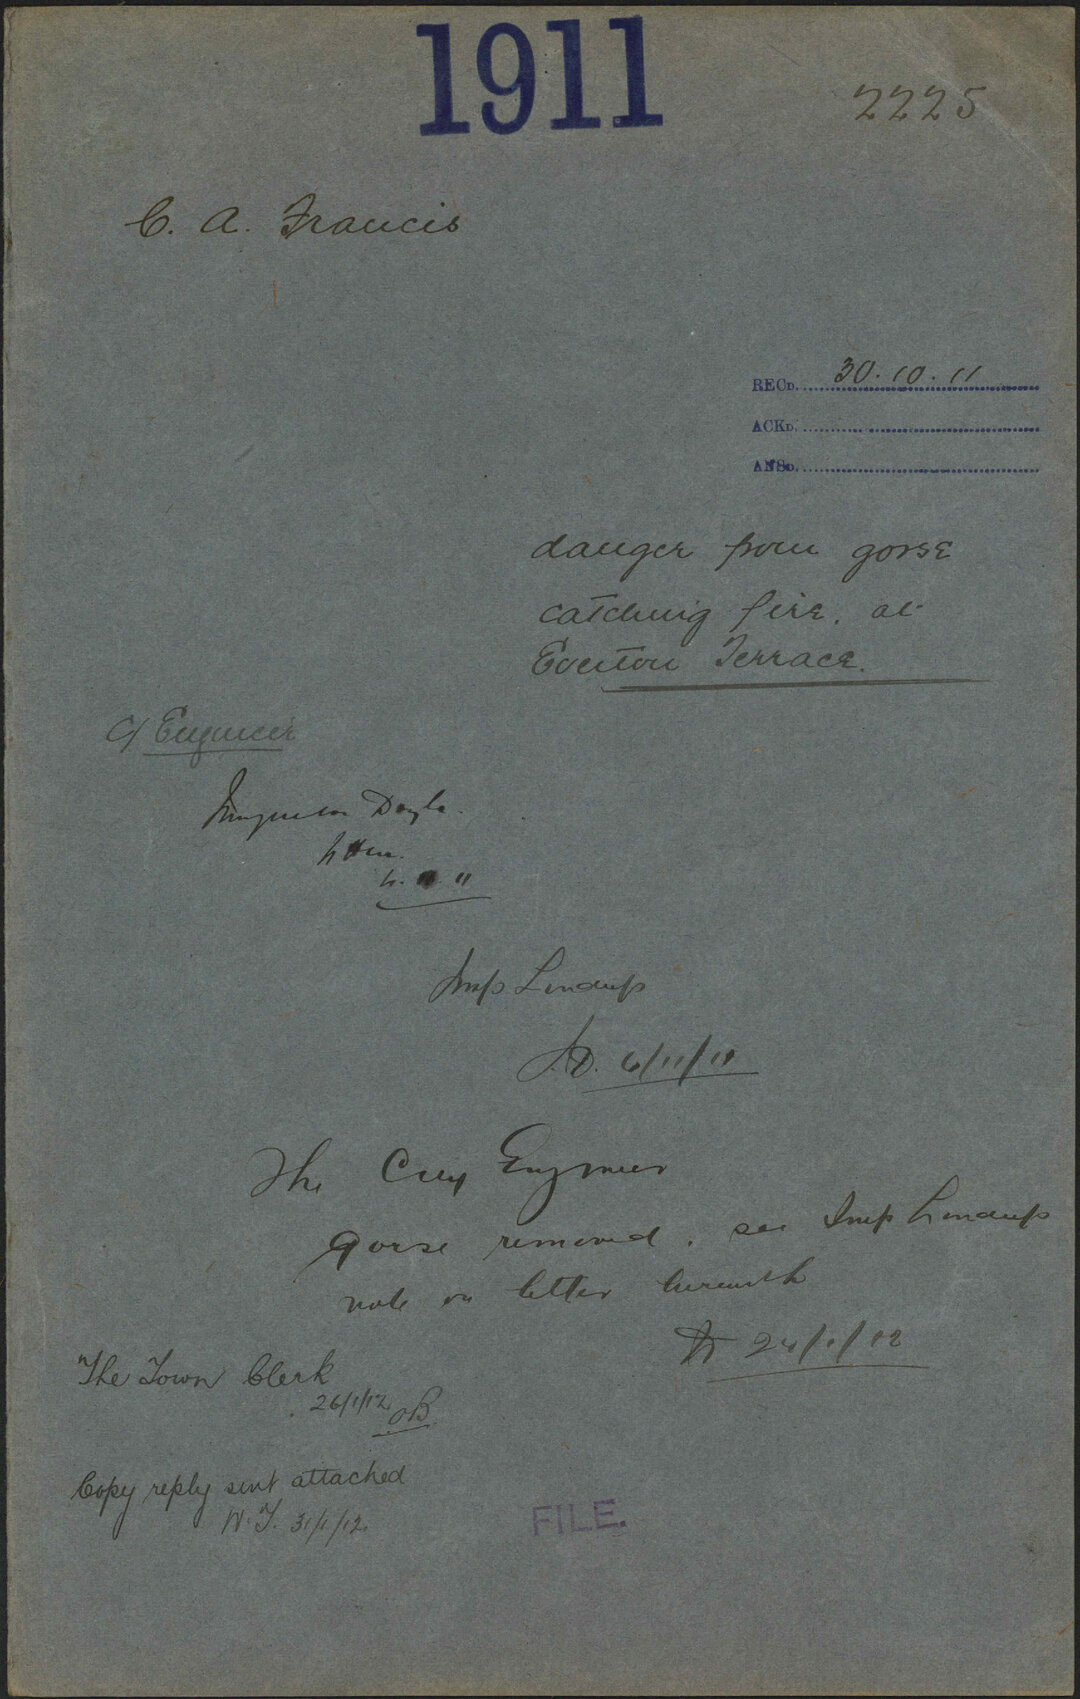 1911
2225
C. A. Francis
RECD. 30.10.11
ACKD.
ANSD.
danger from gorse
catching fire, at
Everton Terrace.
C/ Engineer
Doyle.
11
Insp Lindup
J.D. 6/11/11
The City Engineer
Gorse removed. see Insp Lindup
note on letter herewith
24/1/12
The Town Clerk
26/1/12
Copy reply sent attached
W.T. 31/1/12.
FILE.